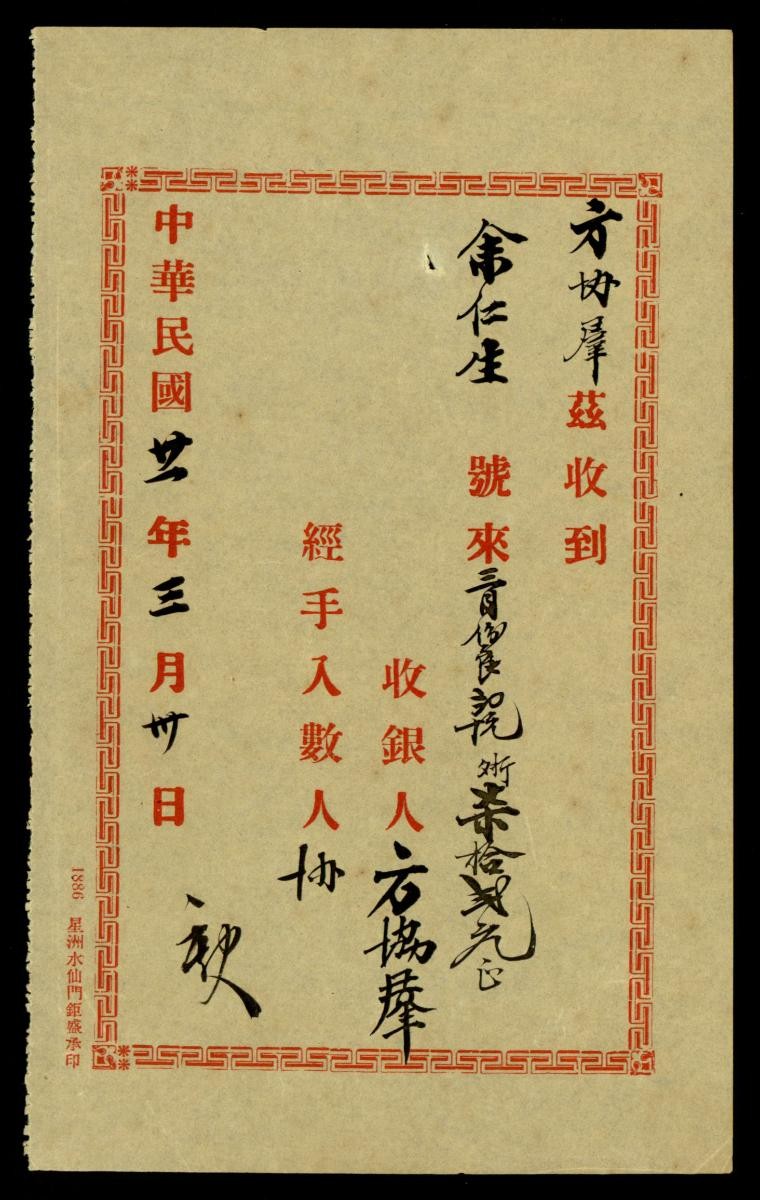 方协羣茲收到
余仁生號來三月份柒拾弍元正
收銀人方協羣
經手入數人协
中華民國廿一年三月卅日
1886 星洲水仙門鉅盛承印